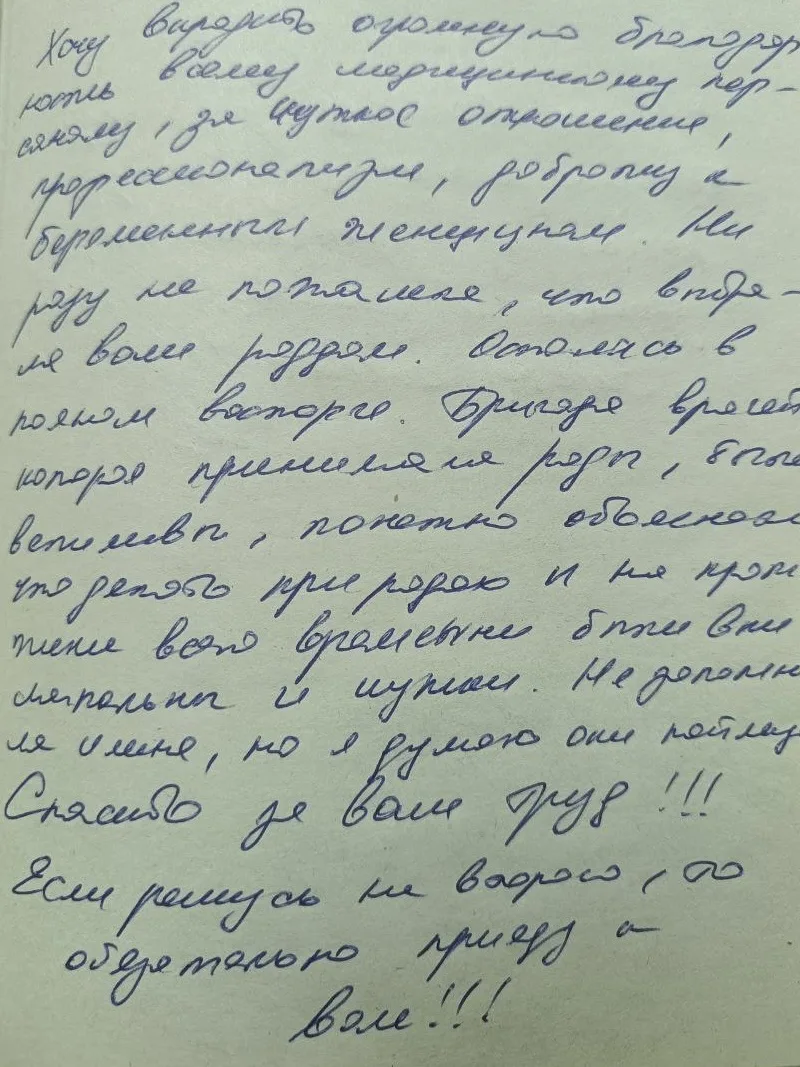 Хочу выразить огромную благодар
ность всему медицинскому пер-
соналу, за чуткое отношение,
профессионализм, доброту к
беременным женщинам. Ни
разу не пожалела, что выбра-
ла ваш роддом. Осталась в
полном восторге. Бригада врачей
которая принимала роды, были
вежливы, понятно объясняли
что делать при родах и на прот
жении всего времени были вни
мательны и чутки. Не запомни
ла имена, но я думаю они поймут
Спасибо за ваш труд!!!
Если решусь на второго, то
обязательно приеду к
вам!!!